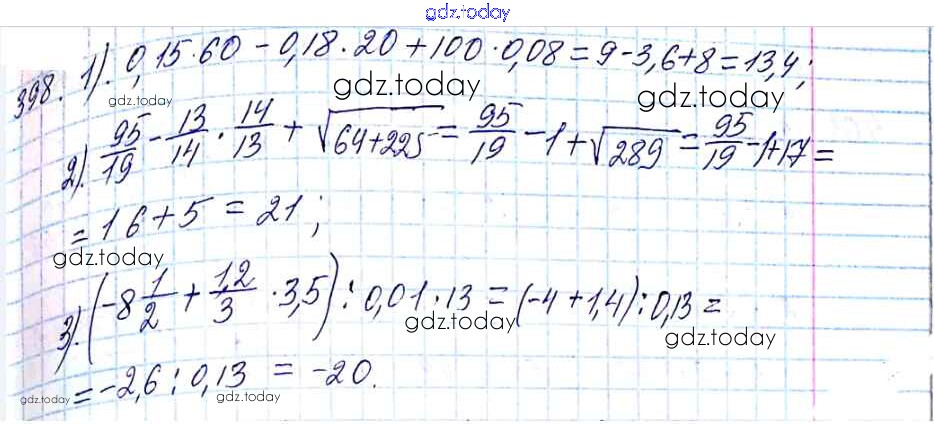 gdz.today
398. 1). 0,15·60 - 0,18·20 + 100·0,08 = 9 - 3,6 + 8 = 13,4;
gdz.today gdz.today gdz.today
2). 95/19 - 13/14 · 14/13 + √(64+225) = 95/19 - 1 + √289 = 95/19 - 1 + 17 =
= 16 + 5 = 21;
gdz.today
3). (-8 1/2 + 1,2/3 · 3,5) : 0,01·13 = (-4 + 1,4) : 0,13 =
gdz.today gdz.today
= -2,6 : 0,13 = -20.
gdz.today gdz.today